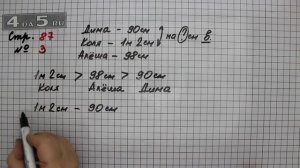 4 да 5.ru
Стр. 87
№ 3
Дима - 90см
Коля - 1м 2см
Алёша -
на ? см
в
1м 2см > 98см > 90см
Коля Алёша Дима
1м 2см - 90см